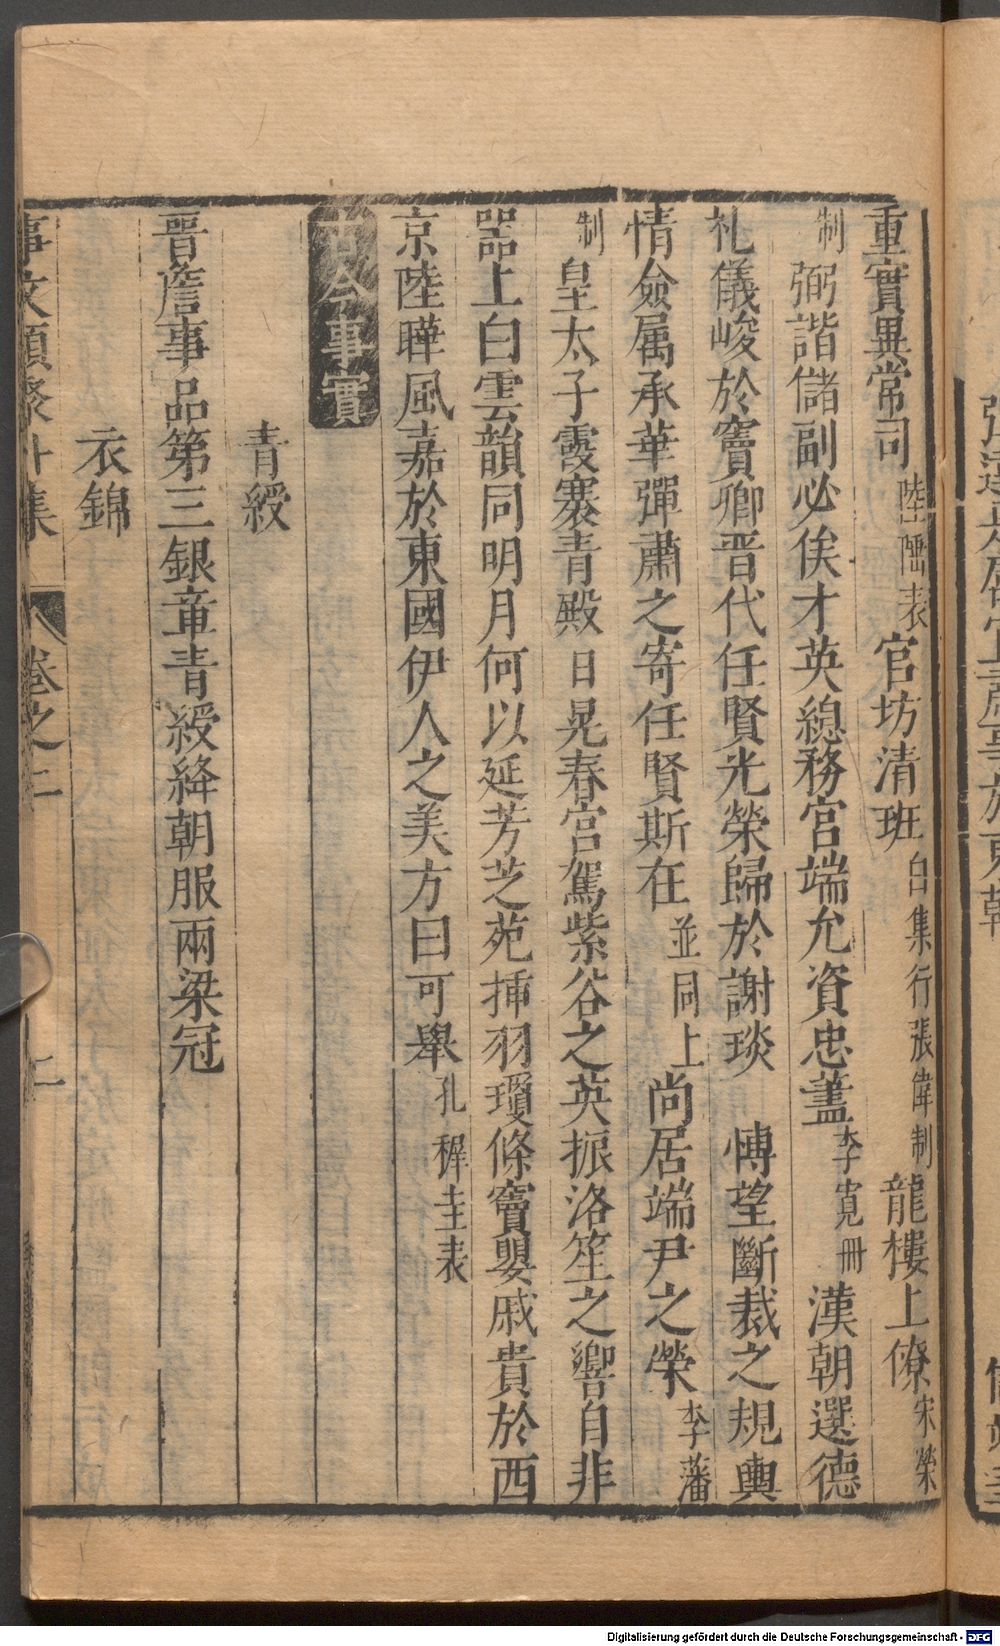 重實異常司陸隱表官坊清班白集行張偉制龍樓上僚宋榮
制弼諧儲副必俟才英總務宮端允資忠藎李寬冊漢朝選德
礼儀峻於竇卿晋代任賢光榮歸於謝琰　愽望斷裁之規輿
情僉属承華彈肅之寄任賢斯在並同上尚居端尹之榮李藩
制皇太子霞褰青殿日晃春宮駕紫谷之英振洛笙之響自非
器上白雲韻同明月何以延芳芝苑揷羽瓊條竇嬰戚貴於西
京陸曄風嘉於東國伊人之美方曰可舉孔稺圭表
古今事實
青綬
晋詹事品第三銀章青綬絳朝服兩梁冠
衣錦
事文類聚外集　卷之二
Digitalisierung gefördert durch die Deutsche Forschungsgemeinschaft - DFG